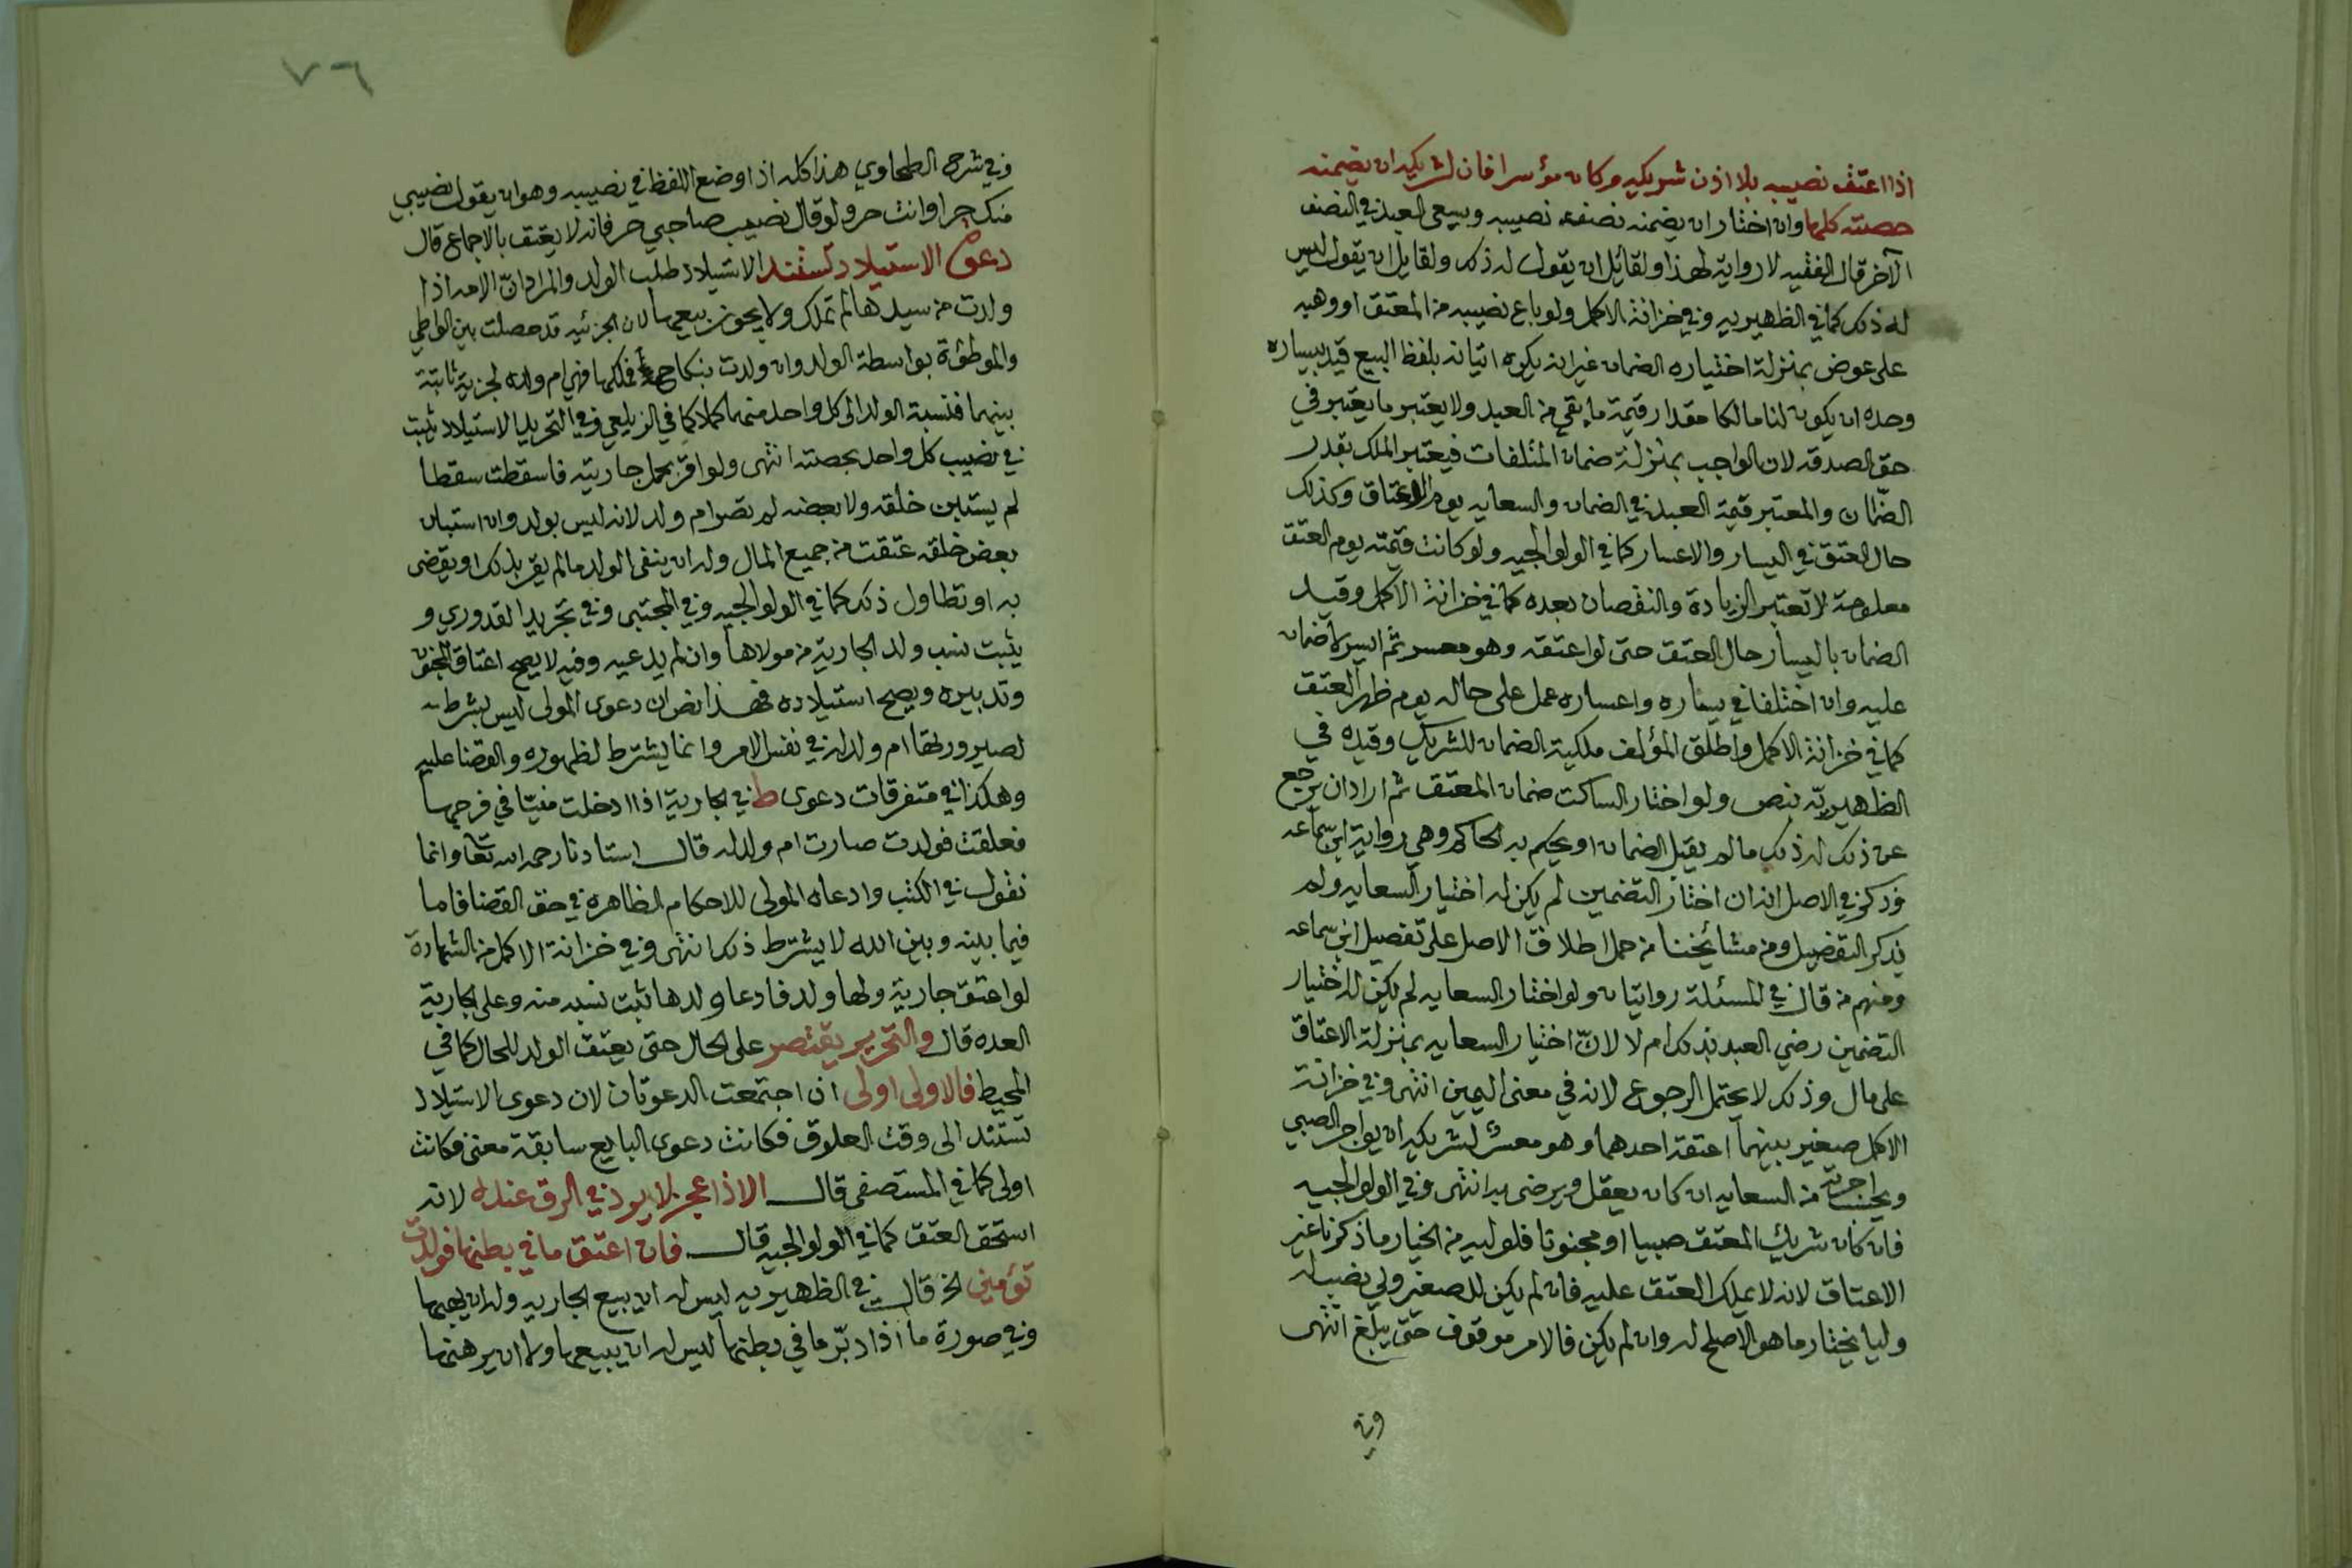 اذا اعتق نصيبه بلا اذن شريكه وكان مؤسرا فان لشريكه ان يضمنه
حصته كلها وان اختار ان يضمنه نصف نصيبه ويسعى العبد في النصف
الآخر قال الفقيه لا رواية لهذا ولقائل ان يقول له ذلك ولقايل ان يقول ليس
له ذلك كما في الظهيريه وفي خزانة الاكمل ولو باع نصيبه من المعتق او وهبه
على عوض بمنزلة اختياره الضمان غير انه يكره اتيانه بلفظ البيع قيد بيساره
وحده ان يكون لنا مالكا مقدار قيمة ما بقي من العبد ولا يعتبر ما يعتبر في
حق الصدقه لان الواجب بمنزلة ضمان المتلفات فيعتبر الملك بقدر
الضمان والمعتبر قيمة العبد في الضمان والسعايه يوم الاعتاق وكذلك
حال المعتق في اليسار والاعسار كما في الولوالجيه ولو كانت قيمته يوم العتق
معلومة لا تعتبر الزيادة والنقصان بعده كما في خزانة الاكمل وقيد
الضمان باليسار حال العتق حتى لو اعتقه وهو معسر ثم ايسر لا ضمان
عليه وان اختلفا في يساره واعساره عمل على حاله يوم ظهر العتق
كما في خزانة الاكمل واطلق المؤلف ملكية الضمان للشريك وقيده في
الظهيريّه بنص ولو اختار الساكت ضمان المعتق ثم اراد ان يرجع
عن ذلك له ذلك ما لم يقبل الضمان او يحكم به الحاكم وهي رواية ابن سماعه
وذكر في الاصل انه ان اختار التضمين لم يكن له اختيار السعايه ولم
يذكر التفصيل ومن مشائخنا من حمل اطلاق الاصل على تفصيل ابن سماعه
ومنهم من قال في المسئلة روايتان ولو اختار السعايه لم يكن له اختيار
التضمين رضي العبد بذلك ام لا لانّ اختيار السعايه بمنزلة الاعتاق
على مال وذلك لا يحتمل الرجوع لانه في معنى اليمين انتهى وفي خزانة
الاكمل صغير بينهما اعتقه احدهما وهو معسر لشريكه ان يواجر الصبي
ويحتسب اجرته من السعايه ان كان يعقل ويرضى به انتهى وفي الولوالجيه
فان كان شريك المعتق صبيا او مجنونا فلوليه من الخيار ما ذكرنا غير
الاعتاق لانه لا يملك العتق عليه فان لم يكن للصغير ولي نصب له
وليا يختار ما هو الاصلح له وان لم يكن فالامر موقوف حتى يبلغ انتهى
وفي
٧٦
وفي شرح الطحاوي هذا كله اذا وضع اللفظ في نصيبه وهو ان يقول نصيبي
منك حر او انت حر ولو قال نصيب صاحبي حر فانه لا يعتق بالاجماع قال
دعوة الاستيلاد تستند الاستيلاد طلب الولد والمراد انّ الامه اذا
ولدت من سيدها لم تملك ولا يجوز بيعها لان الجزئيه قد حصلت بين الواطي
والموطؤة بواسطة الولد وان ولدت بنكاح فملكها فهي ام ولد له لجزية ثابتة
بينهما فنسبة الولد الى كل واحد منهما كملا كما في الزيلعي وفي التجريد الاستيلاد يثبت
في نصيب كل واحد بحصته انتهى ولو اقر بحمل جاريته فاسقطت سقطا
لم يستبين خلقه ولا بعضه لم تصر ام ولد لانه ليس بولد وان استبان
بعض خلقه عتقت من جميع المال وله ان ينفى الولد ما لم يقر بذلك او يقضى
به او تطاول ذلك كما في الولوالجيه وفي المجتبى وفي تجريد القدوري و
يثبت نسب ولد الجارية من مولاها وان لم يدعيه وفيه لا يصح اعتاق المجنون
وتدبيره ويصح استيلاده فهذا نص ان دعوى المولى ليس بشرط
لصيرورتها ام ولد له في نفس الامر وانما يشترط لظهوره والقضا عليه
وهكذا في متفرقات دعوى ط في الجارية اذا ادخلت منيّا في فرجها
فعلقت فولدت صارت ام ولد له قال استادنا رحمه الله تعا وانما
نقول في الكتب وادعاه المولى للاحكام الظاهره في حق القضا فاما
فيما بينه وبين الله لا يشترط ذلك انتهى وفي خزانة الاكمل من الشهادة
لو اعتق جارية ولها ولد فادعا ولدها ثبت نسبه منه وعلى الجارية
العده قال والتحرير يقتصر على الحال حتى يعتق الولد للحال كما في
المحيط فالاولى اولى ان اجتمعت الدعوتان لان دعوى الاستيلاد
تستند الى وقت العلوق فكانت دعوى البايع سابقة معنى فكانت
اولى كما في المستصفى قال الا اذا عجز لا يرد في الرق عنده لانه
استحق العتق كما في الولوالجيه قال فان اعتق ما في بطنها فولدت
تؤمين الخ قال في الظهيريه ليس له ان يبيع الجاريه وله ان يهبها
وفي صورة ما اذا دبّر ما في بطنها ليس له ان يبيعها ولا ان يرهنها